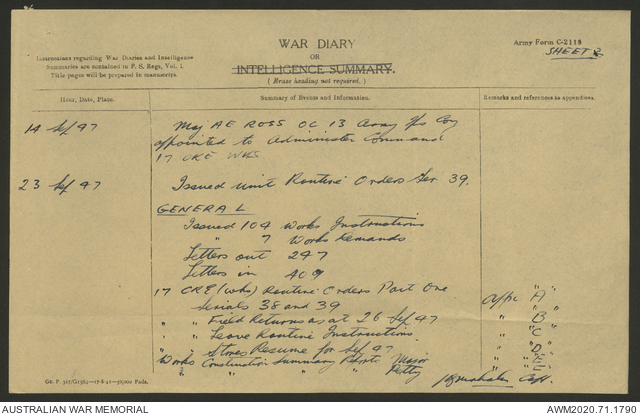 WAR DIARY
OR
INTELLIGENCE SUMMARY.
(Erase heading not required.)
Army Form C-2118
SHEET 2
Instructions regarding War Diaries and Intelligence
Summaries are contained in F. S. Regs, Vol. 1.
Title pages will be prepared in manuscript.
Hour, Date, Place.
Summary of Events and Information.
Remarks and references to appendices.
14 Sep 47
Maj A E ROSS OC 13 Army Tps Coy
appointed to Administer Command
17 CRE WKS
23 Sep 47
Issued unit Routine Orders Ser 39.
GENERAL
Issued 104 Works Instructions
" 7 Works Demands
Letters out 247
Letters in 409
17 CRE (Wks) Routine Orders Part One
Serials 38 and 39
Appx A
" " Field Returns as at 26 Sep 47
" B
" " Leave Routine Instructions.
" C
" " Stores Resume for Sep 47
" D
Works Construction Summary Reports Major
" E
" " " Petty
" F
Capt.
AUSTRALIAN WAR MEMORIAL
AWM2020.71.1790